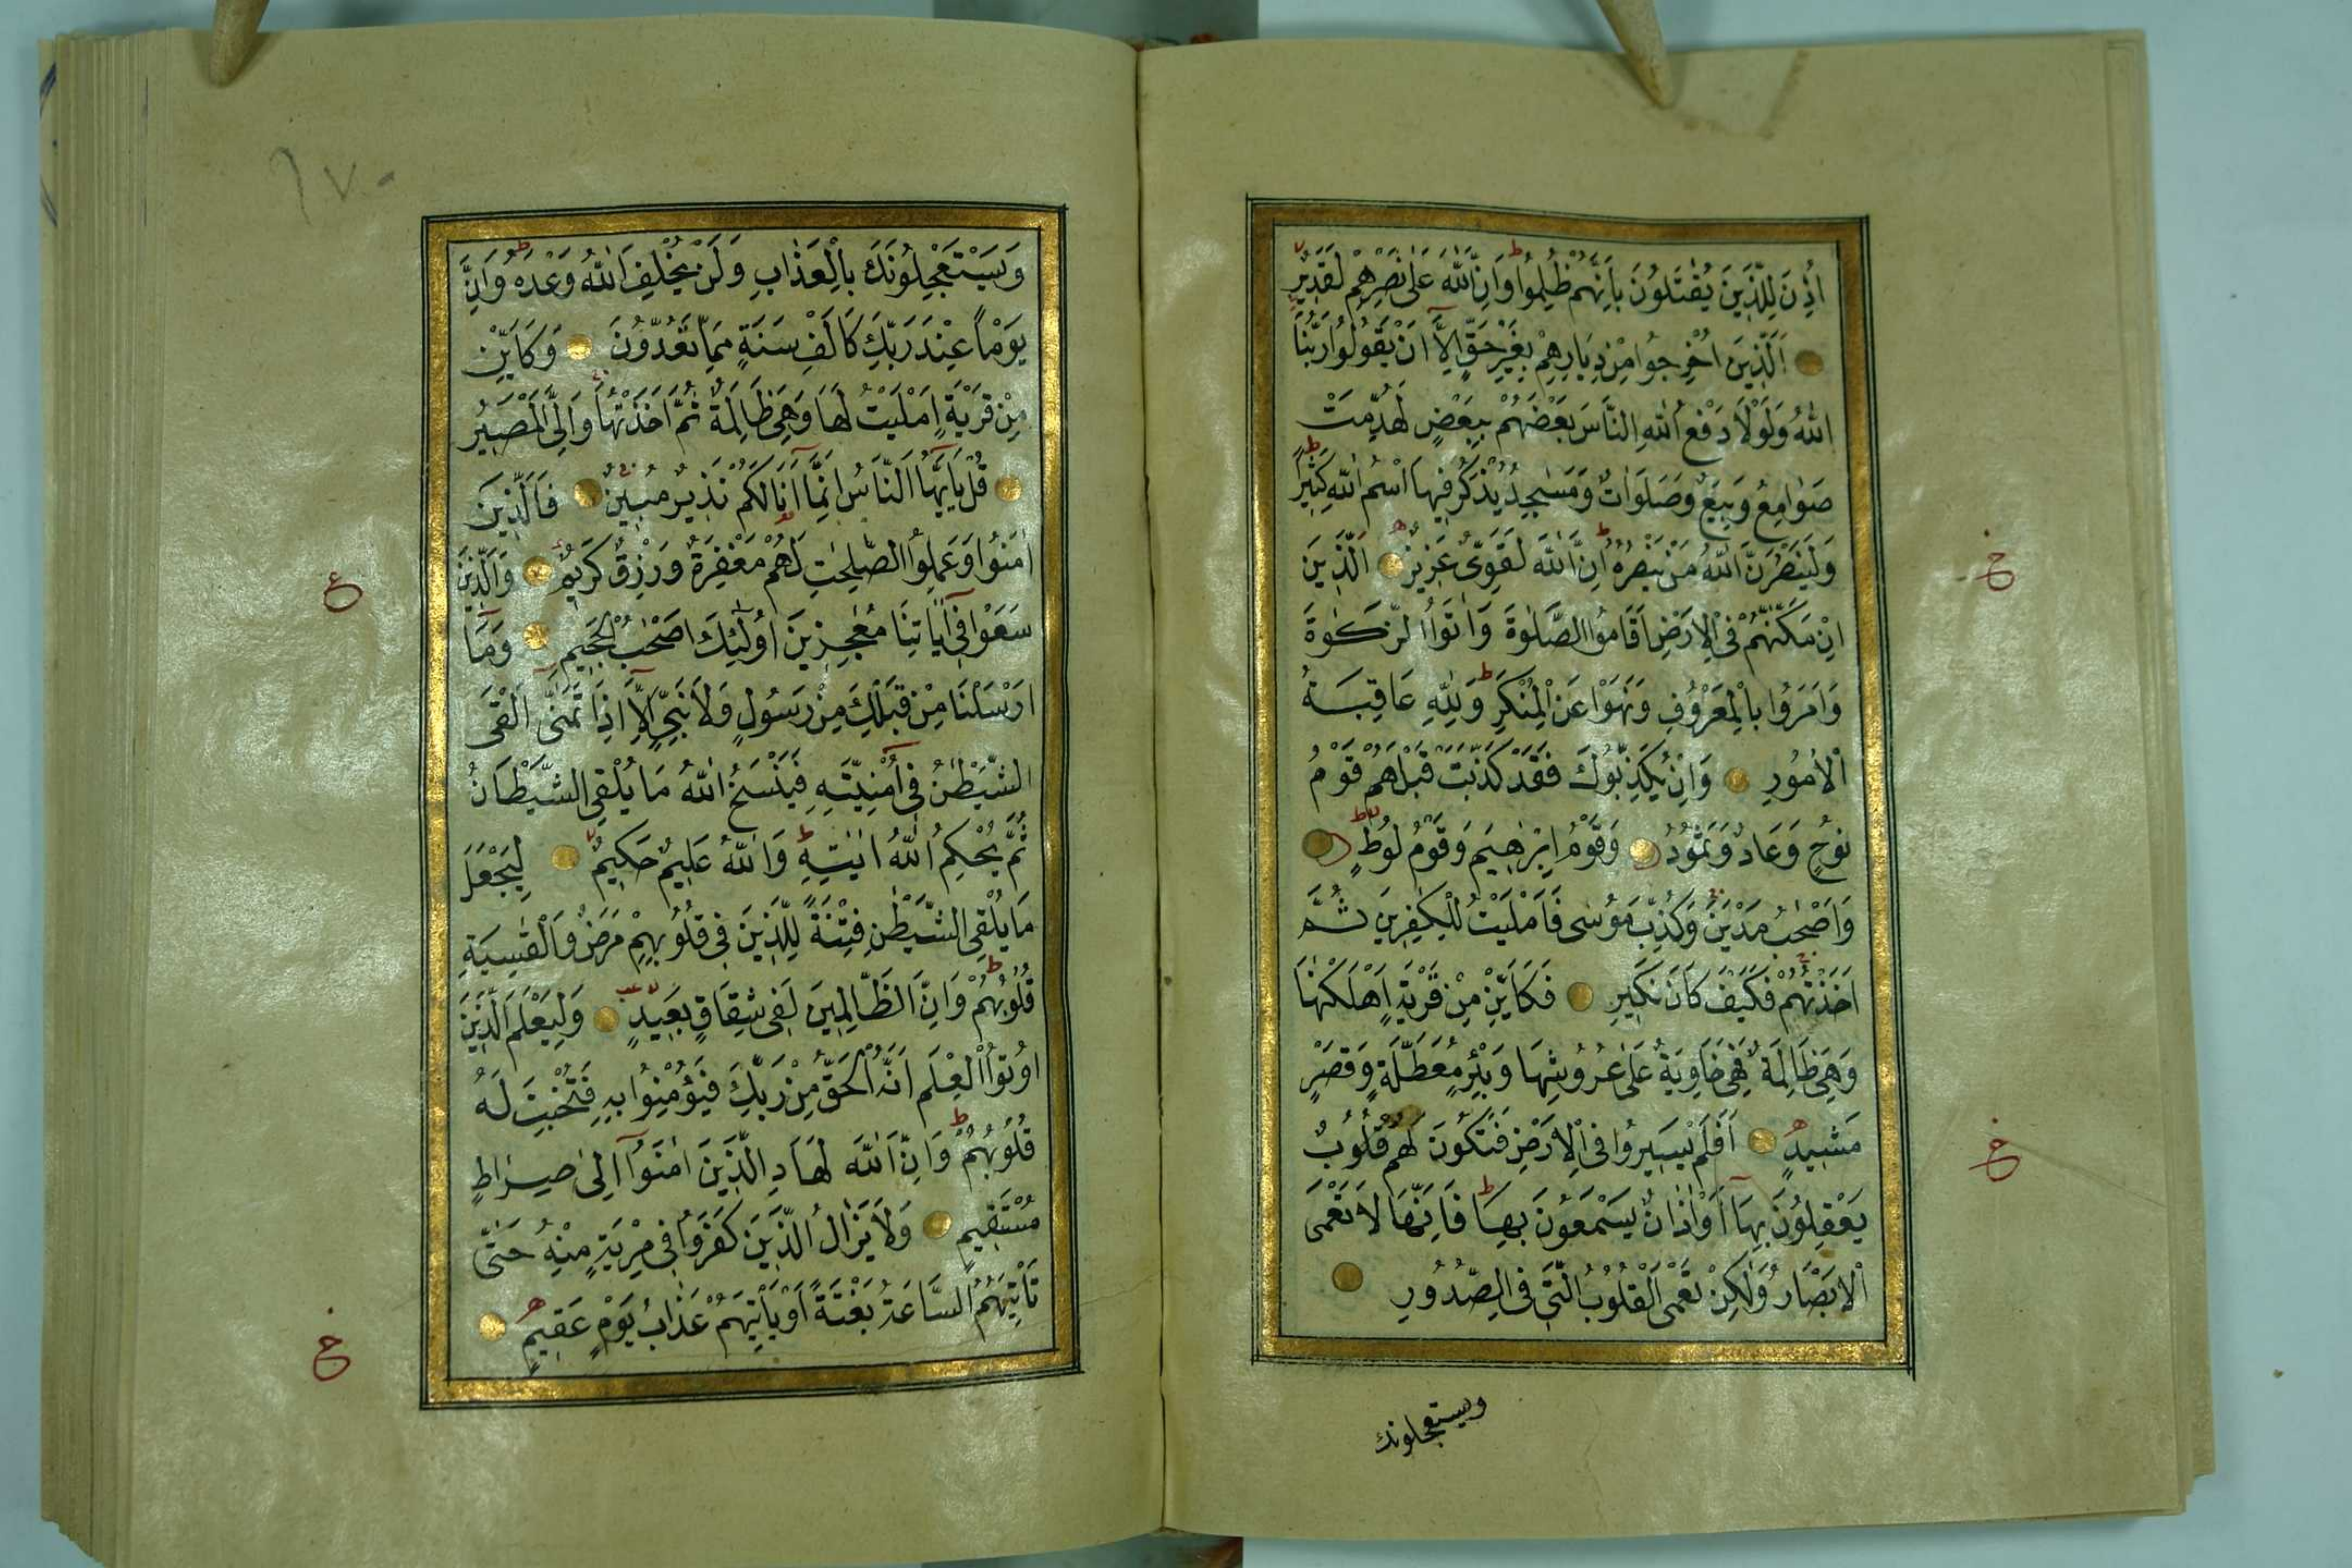 اُذِنَ لِلَّذِينَ يُقٰتَلُونَ بِاَنَّهُمْ ظُلِمُوا وَاِنَّ اللّٰهَ عَلٰى نَصْرِهِمْ لَقَدِيرٌ
اَلَّذِينَ اُخْرِجُوا مِنْ دِيَارِهِمْ بِغَيْرِ حَقٍّ اِلَّا اَنْ يَقُولُوا رَبُّنَا
اللّٰهُ وَلَوْلَا دَفْعُ اللّٰهِ النَّاسَ بَعْضَهُمْ بِبَعْضٍ لَهُدِّمَتْ
صَوَامِعُ وَبِيَعٌ وَصَلَوَاتٌ وَمَسٰجِدُ يُذْكَرُ فِيهَا اسْمُ اللّٰهِ كَثِيرًا
وَلَيَنْصُرَنَّ اللّٰهُ مَنْ يَنْصُرُهُ اِنَّ اللّٰهَ لَقَوِىٌّ عَزِيزٌ اَلَّذِينَ
اِنْ مَكَّنّٰهُمْ فِى الْاَرْضِ اَقَامُوا الصَّلٰوةَ وَاٰتَوُا الزَّكٰوةَ
وَاَمَرُوا بِالْمَعْرُوفِ وَنَهَوْا عَنِ الْمُنْكَرِ وَلِلّٰهِ عَاقِبَةُ
الْاُمُورِ وَاِنْ يُكَذِّبُوكَ فَقَدْ كَذَّبَتْ قَبْلَهُمْ قَوْمُ
نُوحٍ وَعَادٌ وَثَمُودُ وَقَوْمُ اِبْرٰهِيمَ وَقَوْمُ لُوطٍ
وَاَصْحٰبُ مَدْيَنَ وَكُذِّبَ مُوسٰى فَاَمْلَيْتُ لِلْكٰفِرِينَ ثُمَّ
اَخَذْتُهُمْ فَكَيْفَ كَانَ نَكِيرِ فَكَاَيِّنْ مِنْ قَرْيَةٍ اَهْلَكْنٰهَا
وَهِىَ ظَالِمَةٌ فَهِىَ خَاوِيَةٌ عَلٰى عُرُوشِهَا وَبِئْرٍ مُعَطَّلَةٍ وَقَصْرٍ
مَشِيدٍ اَفَلَمْ يَسِيرُوا فِى الْاَرْضِ فَتَكُونَ لَهُمْ قُلُوبٌ
يَعْقِلُونَ بِهَا اَوْ اٰذَانٌ يَسْمَعُونَ بِهَا فَاِنَّهَا لَا تَعْمَى
الْاَبْصَارُ وَلٰكِنْ تَعْمَى الْقُلُوبُ الَّتِى فِى الصُّدُورِ
ويستعجلونك
وَيَسْتَعْجِلُونَكَ بِالْعَذَابِ وَلَنْ يُخْلِفَ اللّٰهُ وَعْدَهُ وَاِنَّ
يَوْمًا عِنْدَ رَبِّكَ كَاَلْفِ سَنَةٍ مِمَّا تَعُدُّونَ وَكَاَيِّنْ
مِنْ قَرْيَةٍ اَمْلَيْتُ لَهَا وَهِىَ ظَالِمَةٌ ثُمَّ اَخَذْتُهَا وَاِلَىَّ الْمَصِيرُ
قُلْ يَااَيُّهَا النَّاسُ اِنَّمَا اَنَا لَكُمْ نَذِيرٌ مُبِينٌ فَالَّذِينَ
اٰمَنُوا وَعَمِلُوا الصّٰلِحٰتِ لَهُمْ مَغْفِرَةٌ وَرِزْقٌ كَرِيمٌ وَالَّذِينَ
سَعَوْا فِى اٰيَاتِنَا مُعٰجِزِينَ اُولٰئِكَ اَصْحٰبُ الْجَحِيمِ وَمَا
اَرْسَلْنَا مِنْ قَبْلِكَ مِنْ رَسُولٍ وَلَا نَبِىٍّ اِلَّا اِذَا تَمَنّٰى اَلْقَى
الشَّيْطٰنُ فِى اُمْنِيَّتِهِ فَيَنْسَخُ اللّٰهُ مَا يُلْقِى الشَّيْطَانُ
ثُمَّ يُحْكِمُ اللّٰهُ اٰيٰتِهِ وَاللّٰهُ عَلِيمٌ حَكِيمٌ لِيَجْعَلَ
مَا يُلْقِى الشَّيْطٰنُ فِتْنَةً لِلَّذِينَ فِى قُلُوبِهِمْ مَرَضٌ وَالْقٰسِيَةِ
قُلُوبُهُمْ وَاِنَّ الظَّالِمِينَ لَفِى شِقَاقٍ بَعِيدٍ وَلِيَعْلَمَ الَّذِينَ
اُوتُوا الْعِلْمَ اَنَّهُ الْحَقُّ مِنْ رَبِّكَ فَيُؤْمِنُوا بِهِ فَتُخْبِتَ لَهُ
قُلُوبُهُمْ وَاِنَّ اللّٰهَ لَهَادِ الَّذِينَ اٰمَنُوا اِلٰى صِرَاطٍ
مُسْتَقِيمٍ وَلَا يَزَالُ الَّذِينَ كَفَرُوا فِى مِرْيَةٍ مِنْهُ حَتّٰى
تَأْتِيَهُمُ السَّاعَةُ بَغْتَةً اَوْ يَأْتِيَهُمْ عَذَابُ يَوْمٍ عَقِيمٍ